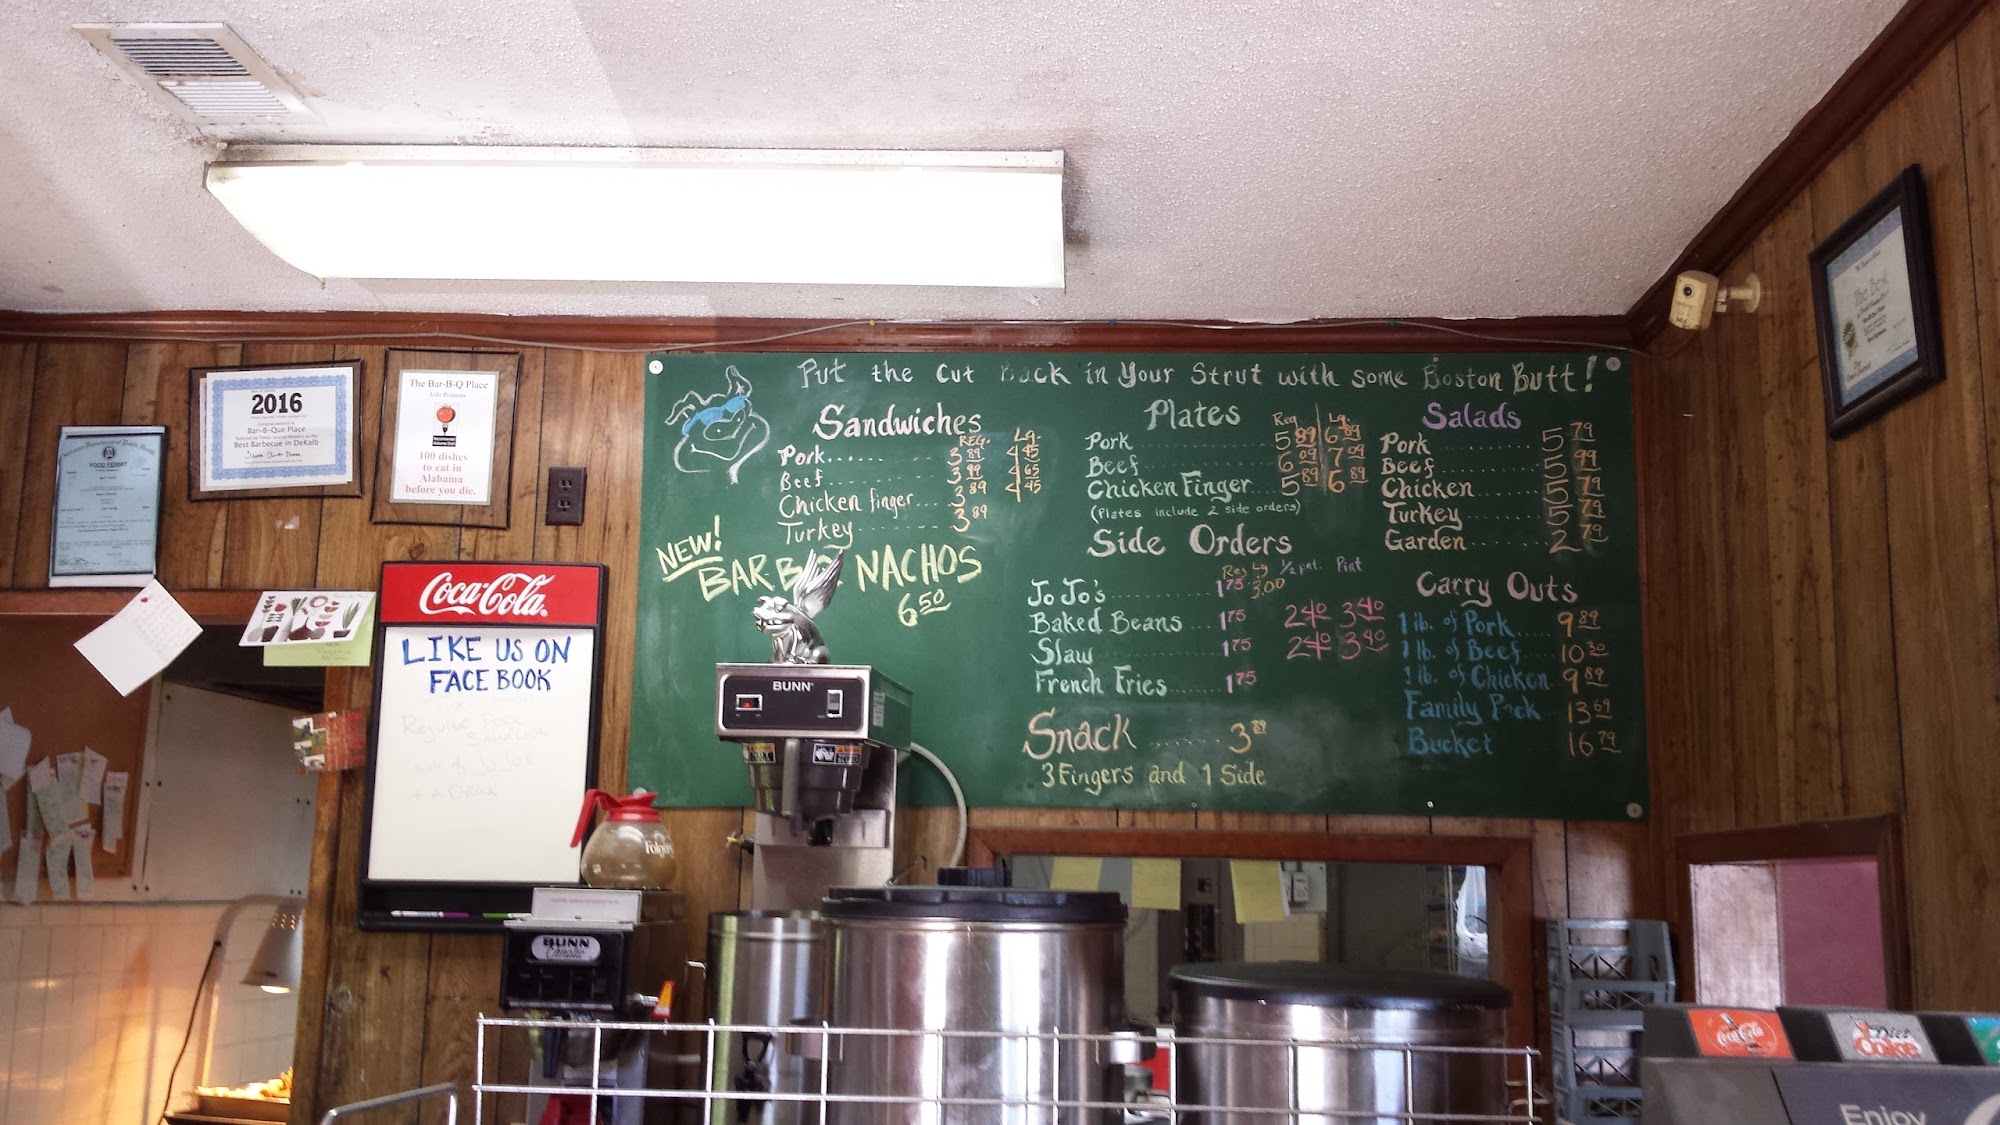 Put the Cut Back in Your Strut with some Boston Butt!
Sandwiches
REG. Lg.
Pork........ 3 89 4 45
Beef........ 3 99 4 65
Chicken finger.... 3 89 4 45
Turkey........ 3 89
NEW!
BAR B Q NACHOS
6 50
Plates
Reg Lg.
Pork........ 5 89 6 89
Beef........ 6 09 7 09
Chicken Finger.... 5 89 6 89
(Plates include 2 side orders)
Side Orders
Reg Lg 1/2 pt. Pint
Jo Jo's........ 1 75 3.00
Baked Beans.... 1 75 2 40 3 40
Slaw........ 1 75 2 40 3 40
French Fries...... 1 75
Snack ....... 3 89
3 Fingers and 1 Side
Salads
Pork........ 5 79
Beef........ 5 99
Chicken........ 5 79
Turkey........ 5 79
Garden........ 2 79
Carry Outs
1 lb. of Pork.... 9 89
1 lb. of Beef.... 10 30
1 lb. of Chicken.. 9 89
Family Pack 13 69
Bucket 16 79
2016
Bar-B-Que Place
Best Barbecue in DeKalb
The Bar-B-Q Place
JoJo Potatoes
100 dishes
to eat in
Alabama
before you die.
FOOD PERMIT
Coca-Cola
LIKE US ON
FACE BOOK
Regular Pork
Sandwich
side of JoJos
& a Drink
BUNN
Folgers
BUNN
The Best
Coca-Cola
Diet
Coke
Enjoy